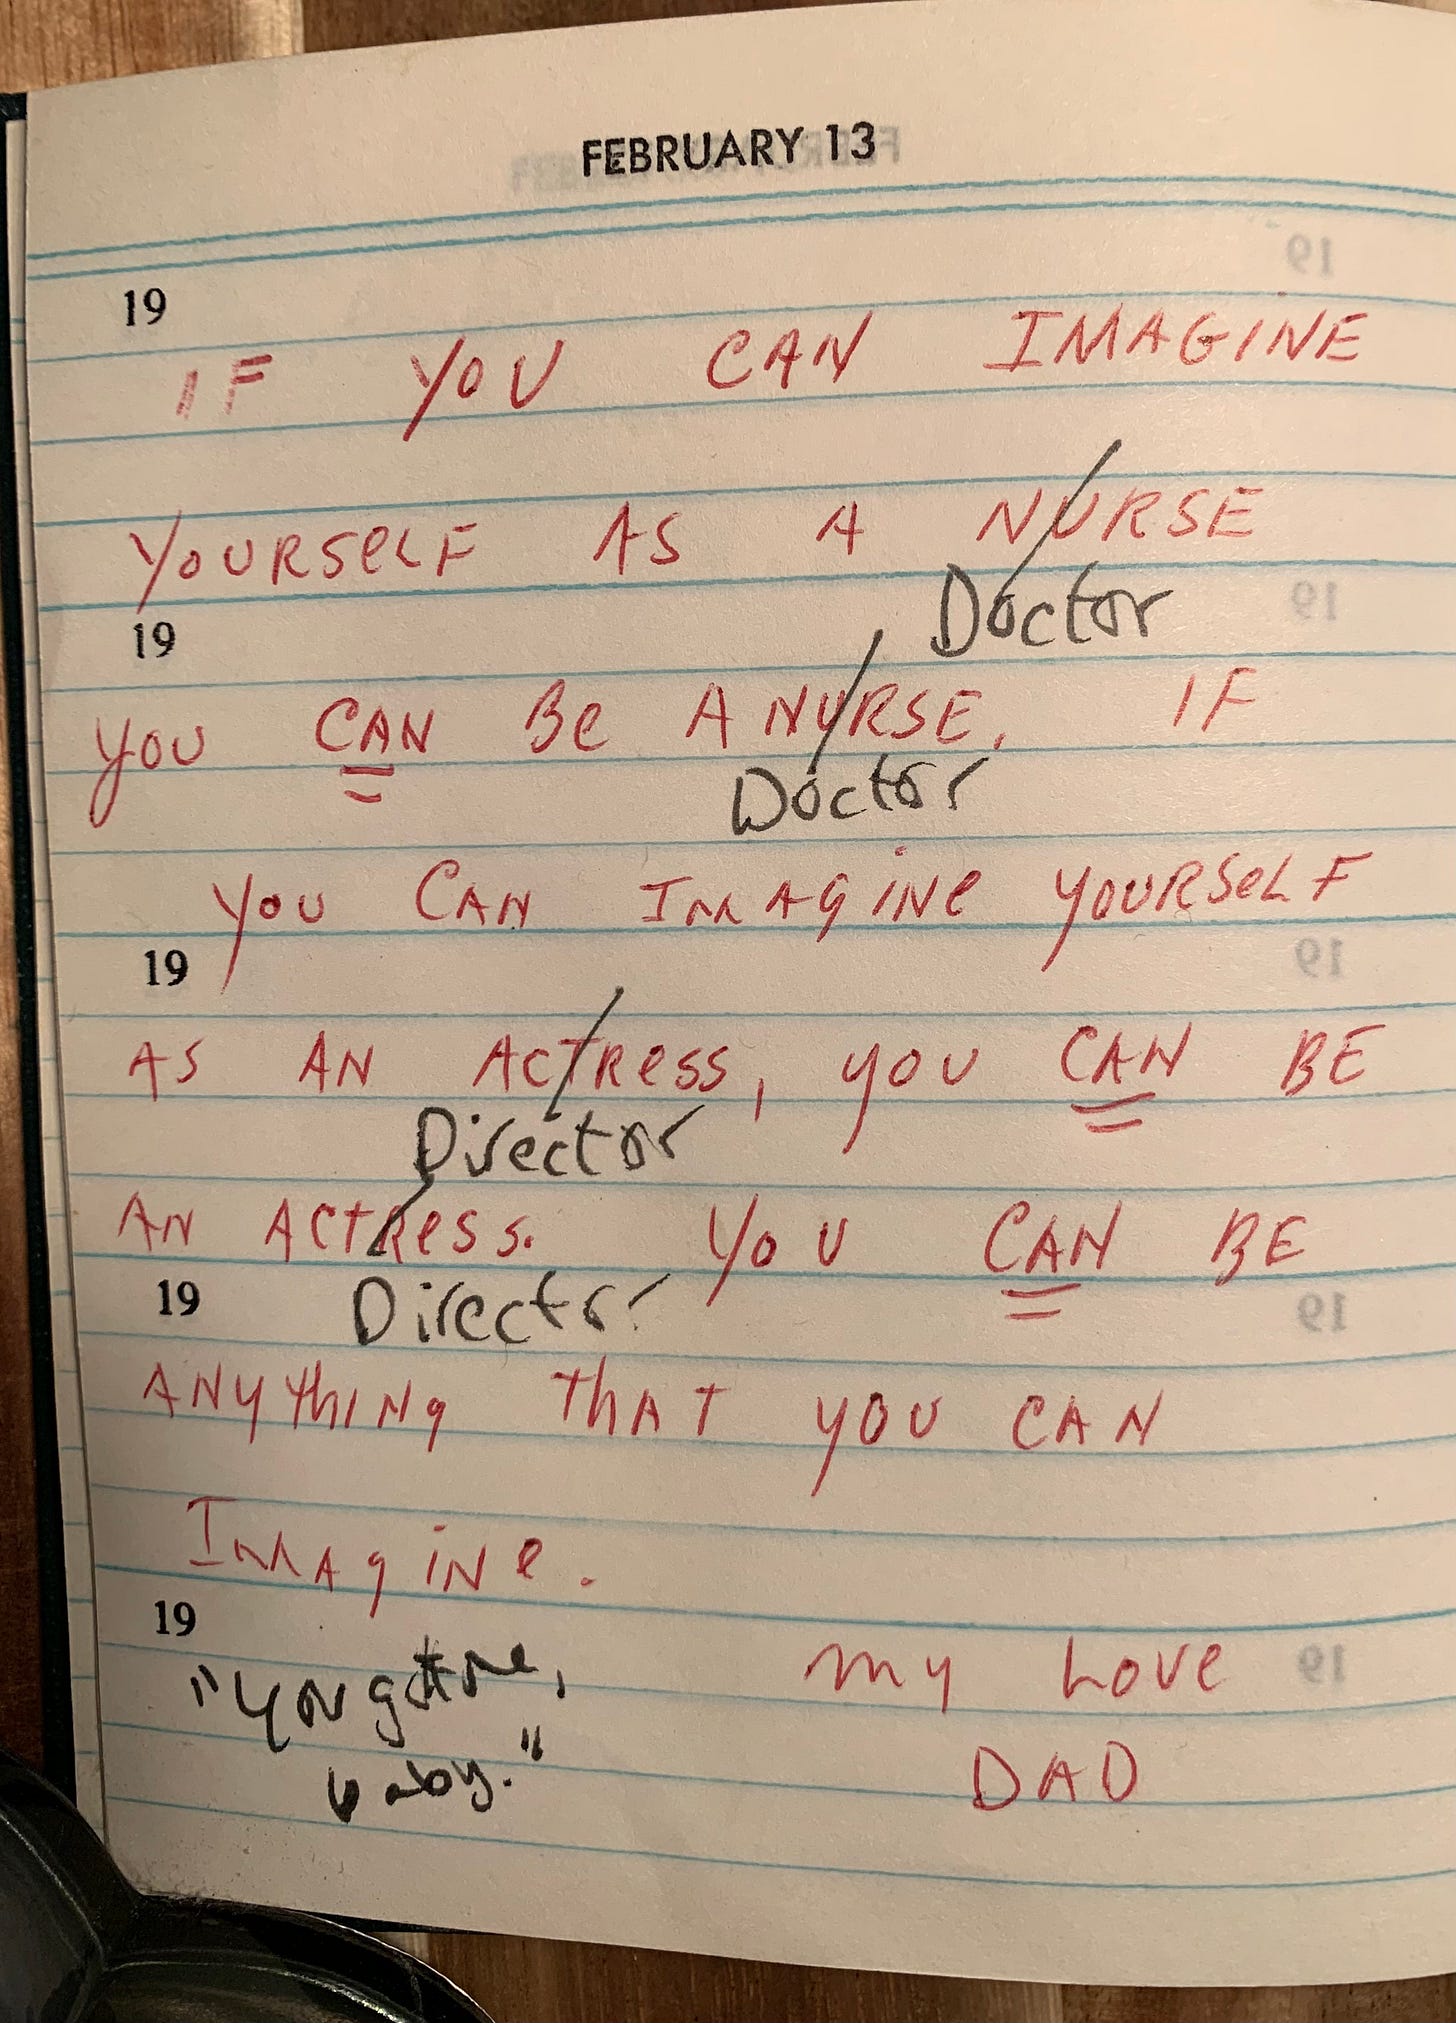 FEBRUARY 13
19
IF YOU CAN IMAGINE
YOURSELF AS A NURSE
Doctor
19
YOU CAN Be A NURSE. IF
Doctor
YOU CAN IMAGINe YOURSeLF
19
AS AN ACTRess, YOU CAN BE
Director
AN ACTRess. YOU CAN BE
19 Director
ANYthING thAT YOU CAN
IMAgINe.
19
"You got me, my Love
baby." DAD